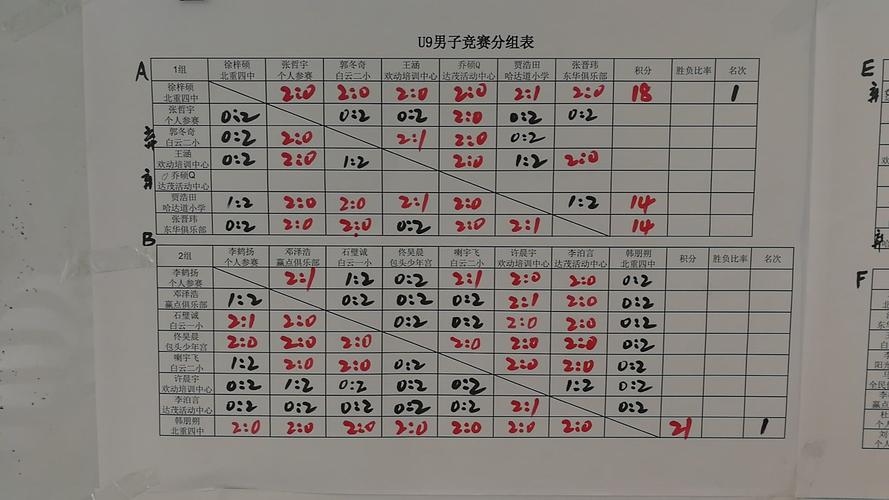 U9男子竞赛分组表
A
1组 徐梓硕 北重四中 张哲宇 个人参赛 郭冬奇 白云二小 王涵 欢动培训中心 乔硕Q 达茂活动中心 贾浩田 哈达道小学 张晋玮 东华俱乐部 积分 胜负比率 名次
徐梓硕 北重四中 2:0 2:0 2:0 2:0 2:1 2:0 18 1
张哲宇 个人参赛 0:2 0:2 0:2 2:0 0:2 0:2
弃 郭冬奇 白云二小 0:2 2:0 2:1 2:0 0:2
王涵 欢动培训中心 0:2 2:0 1:2 2:0 1:2 2:0
弃 乔硕Q 达茂活动中心
贾浩田 哈达道小学 1:2 2:0 2:0 2:1 2:0 1:2 14
张晋玮 东华俱乐部 0:2 2:0 2:0 0:2 2:0 2:1 14
B
2组 李鹤扬 个人参赛 邓泽浩 赢点俱乐部 石璧诚 白云一小 佟昊晨 包头少年宫 喇宇飞 白云二小 许晨宇 欢动培训中心 李泊言 达茂活动中心 韩朋朔 北重四中 积分 胜负比率 名次
李鹤扬 个人参赛 2:1 1:2 0:2 2:1 2:0 2:0 0:2
邓泽浩 赢点俱乐部 1:2 0:2 0:2 0:2 2:1 2:0 0:2
石璧诚 白云一小 2:1 2:0 0:2 0:2 2:0 2:0 0:2
佟昊晨 包头少年宫 2:0 2:0 2:0 2:0 2:0 2:0 0:2
喇宇飞 白云二小 1:2 2:0 2:0 0:2 2:0 2:0 0:2
许晨宇 欢动培训中心 0:2 1:2 0:2 0:2 0:2 1:2 0:2
李泊言 达茂活动中心 0:2 0:2 0:2 0:2 0:2 2:1 0:2
韩朋朔 北重四中 2:0 2:0 2:0 2:0 2:0 2:0 2:0 21 1
E
F